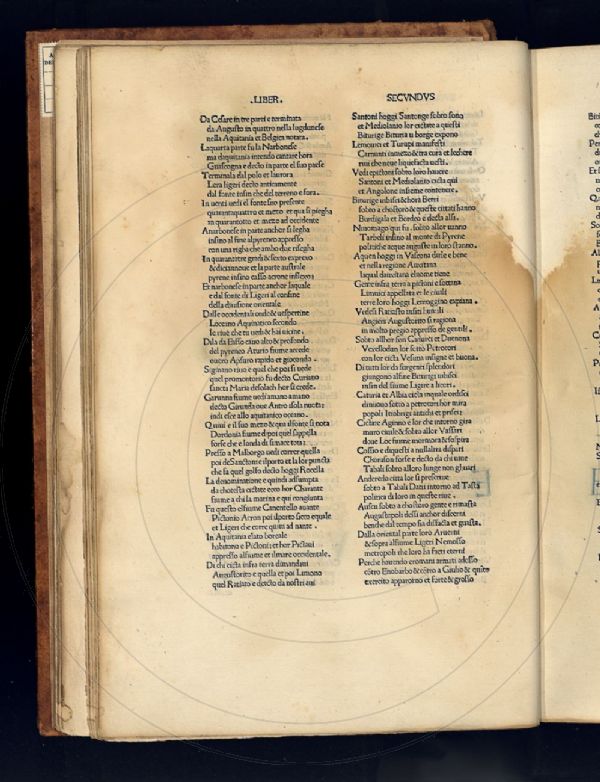 .LIBER.
Da Cesare in tre parti e terminata
da Augusto in quattro nella lugdunese
nella Aquitania et Belgica notata.
Laquarta parte fu la Narbonese
ma daquitania intendo cantare hora
Guascogna e decto in parte el suo paese
Terminala dal polo et laurora
Lera ligeri decto anticamente
dal fonte infin che del terreno e fora.
In uenti uedi el fonte suo presente
quarantaquattro et mezo et qua si piegha
in quarantotto et mezo ad occidente
A narbonese in parte anchor si legha
insino al fine alpyreneo appresso
con una righa che ambo due risegha
In quaranatre gradi & sexto expresso
& diciannoue et la parte australe
pyrene insino casso aeone inflexo
Et narbonese in parte anchor laquale
e dal fonte di Ligeri al confine
della diuisione orientale
Dalle occidentali onde & uespertine
Loceano Aquitanico secondo
le riue che tu uedi & hai uicine.
Dila da Easo exiio alto & profondo
del pyreneo Aturio fiume accede
ouero Apsuro rapido et giocondo.
Siginatio riuo e quel che poi si uede
quel promontorio fu decto Curiano
sancta Maria desolach hor si crede.
Garunna fiume uedi amano amano
decta Gironda oue Antro isola nuota
indi esce allo aquitanico oceano.
Quiui e il suo mezo & qua alfonte si nota
Dordonia fiume el poi quel sappella
forse che e londa di sanare tota
Presso a Malborgo unda correr quella
poi de Sanctone ilporto et la lor puncta
che sa quel golfo decto hoggi Rocella
La denominatione e quindi adsumpta
da chotesta cictate ecco hor Charante
fiume a chi la marina e qui congiunta
Fu questo elfiume Canentello auante
Pictonio Atron poi ilporto Secoro equale
et Ligeri che corre quini ad nante.
In Aquitania elato boreale
habitono e Pictoni et hor Pictaui
appresso alfiume et ilmare occidentale.
Da chi cicta infra terra dimandaui
Augustorito e quella et poi Limono
quel Ratiato e detcto da nostri aui
SECVNDVS
Santoni hoggi Santonge sobro sono
et Mediolanio lor cictate a questi
Biturige Bituria u borge expono
Lemouici et Turupi manifesti
Carnunti inmezo & tra cura et lechere
riui che noue liquefacta uesti.
Vedi epictoni sobro loro hauere
Santoni et Mediolanio cicta qui
et Angolone insieme contenere.
Biturige ubisci & chora Berri
sobto a chostoro & queste cittati hanno
Burdigala et Bordeo e decta assi.
Nuiomago qui fu. sobto allor stanno
Tarbelli insino al monte di Pyrene
politiche acque auguste in loro stanno.
Aquen hoggi in Vascona dirle e bene
et nella regione Aucitana
laqual daucitana elnome tiene
Gente infra terra a pictoni e sottana
Limuici appellata et le ciuili
terre loro hoggi Lemoggino expiana.
Vedesi Ratiasto infrai humili
Angieri Augustorito si ragiona
in molto pregio appresso de gentili.
Sobto allhor son Caturci et Ducona
Vercellodan lor sotto Petrocori
con lor cicta Vesuna insigne et buona.
Di tutti lor da surgenti splendori
giungono alfine Bituriggi ubisci
infin del fiume Ligire a heori.
Caturia et Albia cicta inquale ordisci
dintorno sotto a petrocori hor mira
popoli Itobrigi antichi et prisci
Cictate Aginno e lor che intorno gira
muro ciuile & sobto allor Vassari
doue Lot fiume mormora & sospira
Cossio e di questi a nullaltra dispari
Chorason forse e decto da chi uane
Tabali sobto alloro lunge non ghuari
Anderedo citta lor si prescriue
sobto a Tabali Datii intorno ad Tasta
politica di loro in queste riue.
Auscu sobto a chostoro gente e rimasta
Augustepoli dessi anchor discerni
benche dal tempo sia disfacta et guasta.
Dalla oriental parte loro Aruerni
& sopra alfiume Ligeri Nemosso
metropoli che loro ha facti eterni
Perche hauendo eromani armati adesso
cōtro Enobarbo & cōtro a Giulio & quīto
exercito apparoino et forte & grosso